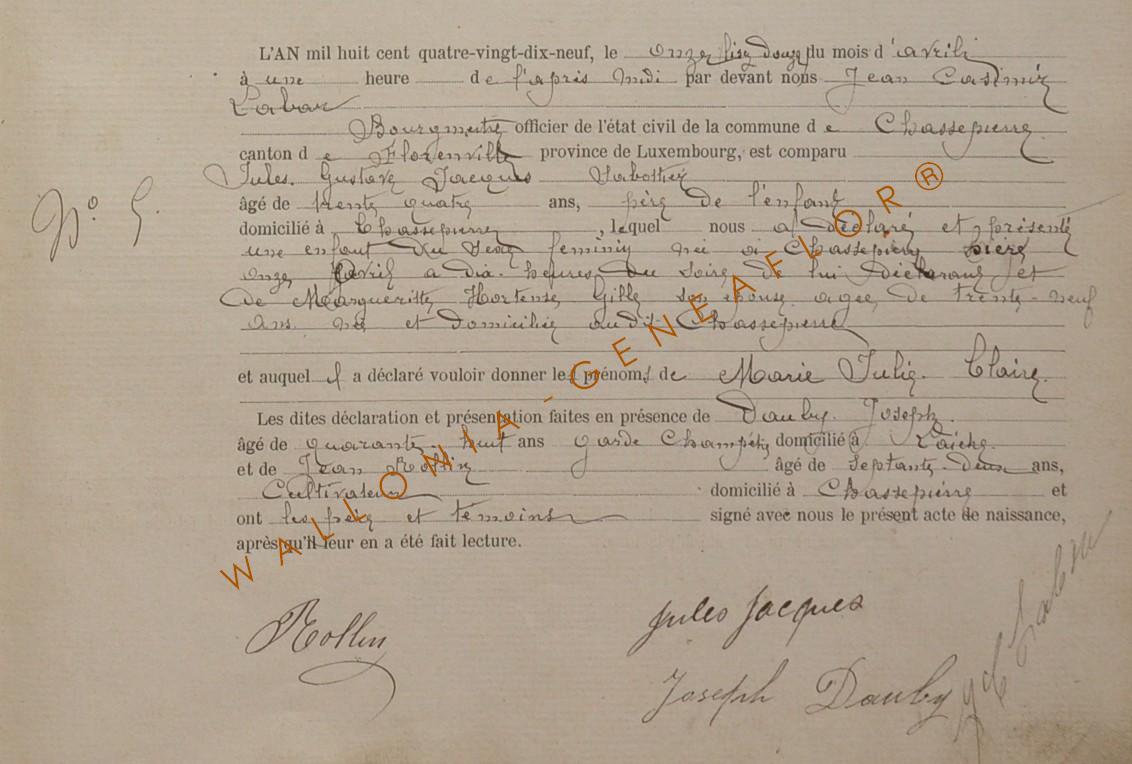 L'AN mil huit cent quatre-vingt-dix-neuf, le onze lisez douze du mois d'avril
à une heure de l'après midi par devant nous Jean Casimir
Labau
Bourgmestre officier de l'état civil de la commune de Chassepierre
canton de Florenville province de Luxembourg, est comparu
Jules Gustave Jacques
âgé de trente quatre ans, père de l'enfant
domicilié à Chassepierre, lequel nous a déclaré et présenté
N° 5.
une enfant du sexe féminin née à Chassepierre hier
onze avril à dix heures du soir, de lui déclarant et
de Marguerite Hortense Gille son épouse agée de trente-neuf
ans née et domiciliée audit Chassepierre
et auquel il a déclaré vouloir donner les prénoms de Marie Julie Claire.
Les dites déclaration et présentation faites en présence de Dauby Joseph
âgé de quarante huit ans garde Champêtre domicilié à Laiche
et de Jean Rollin âgé de septante-deux ans,
Cultivateur domicilié à Chassepierre et
ont les père et témoins signé avec nous le présent acte de naissance,
après qu'il leur en a été fait lecture.
Rollin
Jules Jacques
Joseph Dauby
WALLONIA-GENEAFLOR®